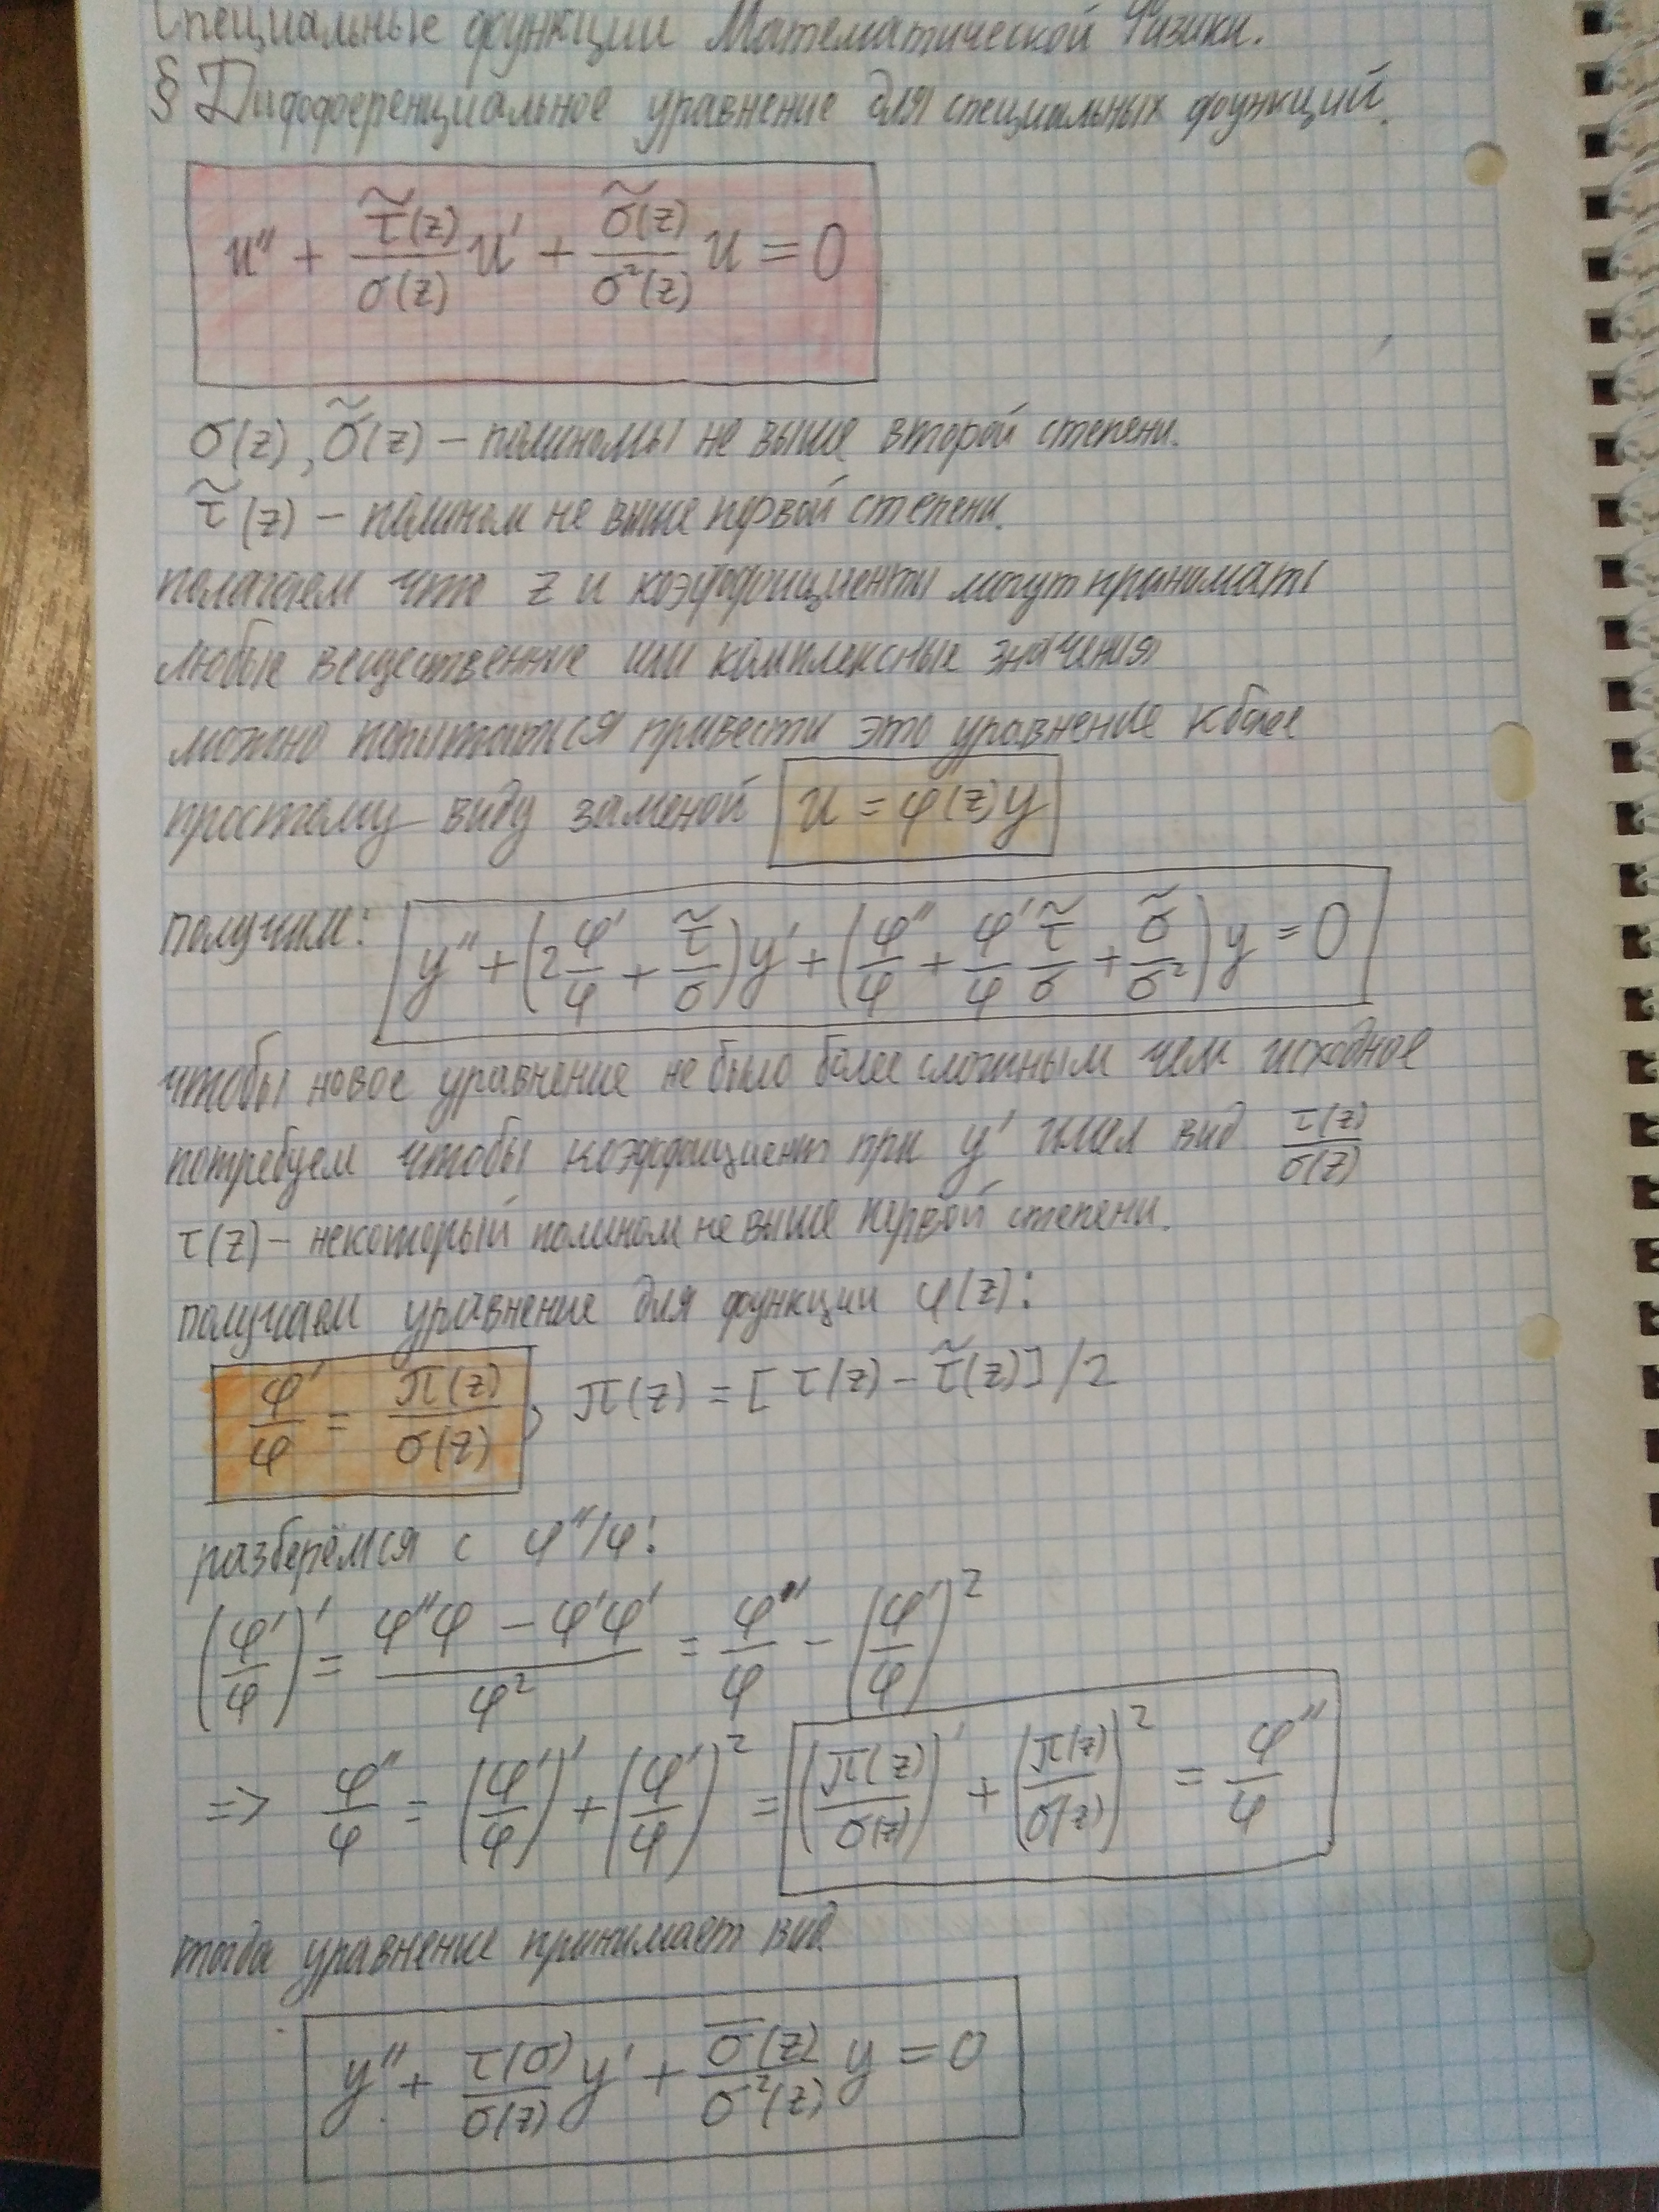 Специальные функции Математической Физики.
§ Дифференциальное уравнение для специальных функций.
u'' + τ̃(z)/σ(z) u' + σ̃(z)/σ²(z) u = 0
σ(z), σ̃(z) – полиномы не выше второй степени.
τ̃(z) – полином не выше первой степени.
полагаем что z и коэффициенты могут принимать
любые вещественные или комплексные значения
можно попытаться привести это уравнение к более
простому виду заменой u = φ(z)y
получим: y'' + (2 φ'/φ + τ̃/σ)y' + (φ''/φ + φ'/φ τ̃/σ + σ̃/σ²)y = 0
чтобы новое уравнение не было более сложным чем исходное
потребуем чтобы коэффициент при y' имел вид τ(z)/σ(z)
τ(z) – некоторый полином не выше первой степени.
получаем уравнение для функции φ(z):
φ'/φ = π(z)/σ(z), π(z) = [τ(z) – τ̃(z)]/2
разберёмся с φ''/φ:
(φ'/φ)' = (φ''φ – φ'φ')/φ² = φ''/φ – (φ'/φ)²
=> φ''/φ = (φ'/φ)' + (φ'/φ)² = (π(z)/σ(z))' + (π(z)/σ(z))² = φ''/φ
тогда уравнение принимает вид
y'' + τ(σ)/σ(z) y' + σ̅(z)/σ²(z) y = 0